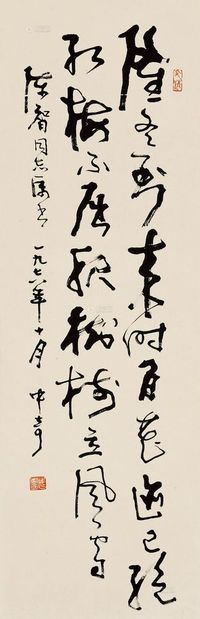 隆冬到来时百花迹已绝
红梅不屈服树树立风雪
智同志属书 一九七 年十月 中奇